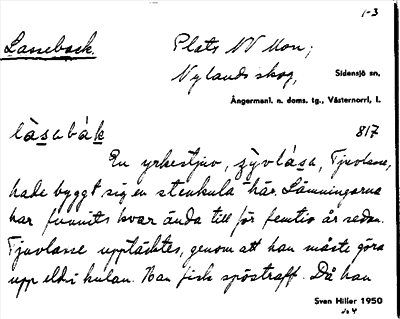 1-3
Lasseback. Plats NV Mon,
Nylands skog, Sidensjö sn,
Ångermanl. n. doms. tg., Västernorrl. l.
làsabák 817
En yrkestjuv, şÿvlása, Tjuvlasse,
hade byggt sig en stenkula här. Lämningarna
har funnits kvar ända till för femtio år sedan.
Tjuvlasse upptäcktes, genom att han måste göra
upp eld i kulan. Han fick spöstraff. Då han
Sven Hiller 1950